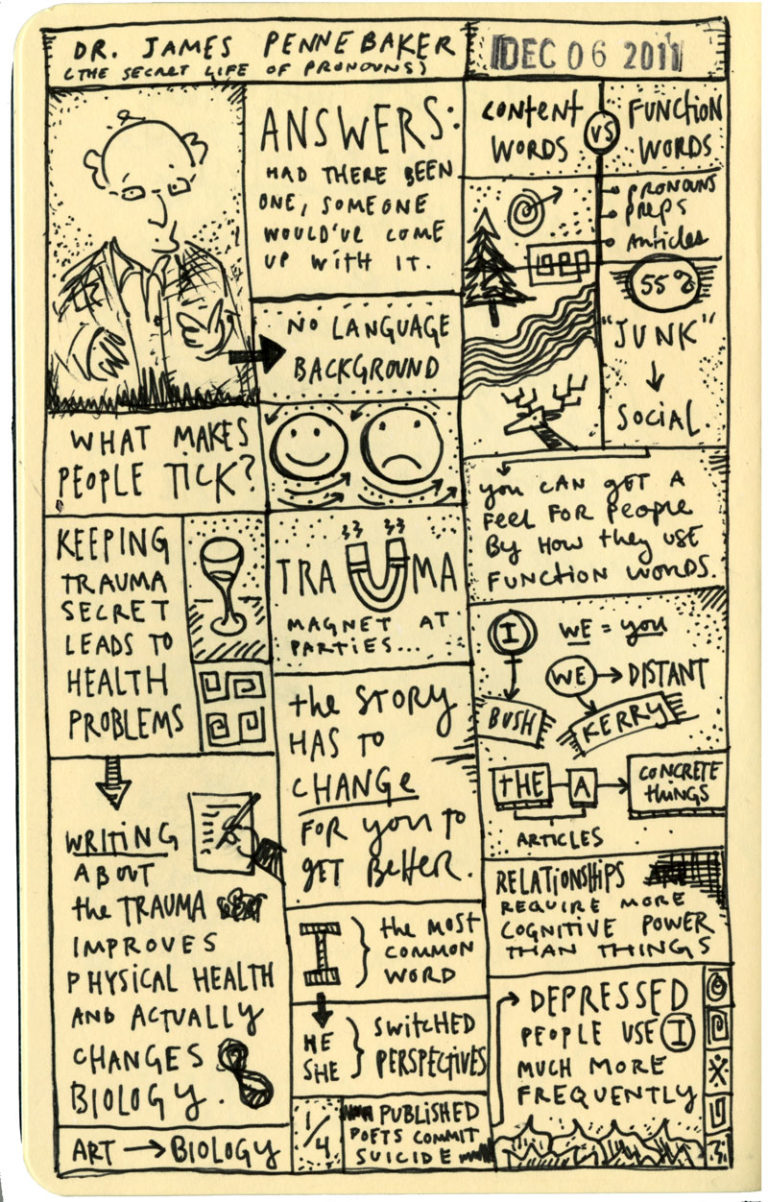 DR. JAMES PENNEBAKER
(THE SECRET LIFE OF PRONOUNS)
DEC 06 2011
ANSWERS:
HAD THERE BEEN
ONE, SOMEONE
WOULD'VE COME
UP WITH IT.
NO LANGUAGE
BACKGROUND
WHAT MAKES
PEOPLE TICK?
KEEPING
TRAUMA
SECRET
LEADS TO
HEALTH
PROBLEMS
WRITING
ABOUT
the TRAUMA
IMPROVES
PHYSICAL HEALTH
AND ACTUALLY
CHANGES
BIOLOGY.
ART → BIOLOGY
TRAUMA
MAGNET AT
PARTIES...
the STORY
HAS TO
CHANGE
FOR you TO
GET BEttER.
I } the MOST
COMMON
WORD
HE
SHE } SWITCHED
PERSPECTIVES
1/4 PUBLISHED
POETS COMMIT
SUICIDE
CONtENt
WORDS
VS
FUNCtiON
WORDS
PRONOUNS
PREPS
ARticles
55%
"JUNK"
↓
SOCIAL.
you CAN GET A
FEEL FOR PEOPLE
By HOW they USE
FUNCtiON WORDS.
I
WE = you
WE → DISTANT
BUSH
KERRY
tHE A → CONCRETE
tHiNGS
ARTICLES
RELAtiONSHIPS
REQUIRE MORE
COGNITIVE POWER
THAN THINGS
DEPRESSED
PEOPLE USE I
MUCH MORE
FREQUENTLY